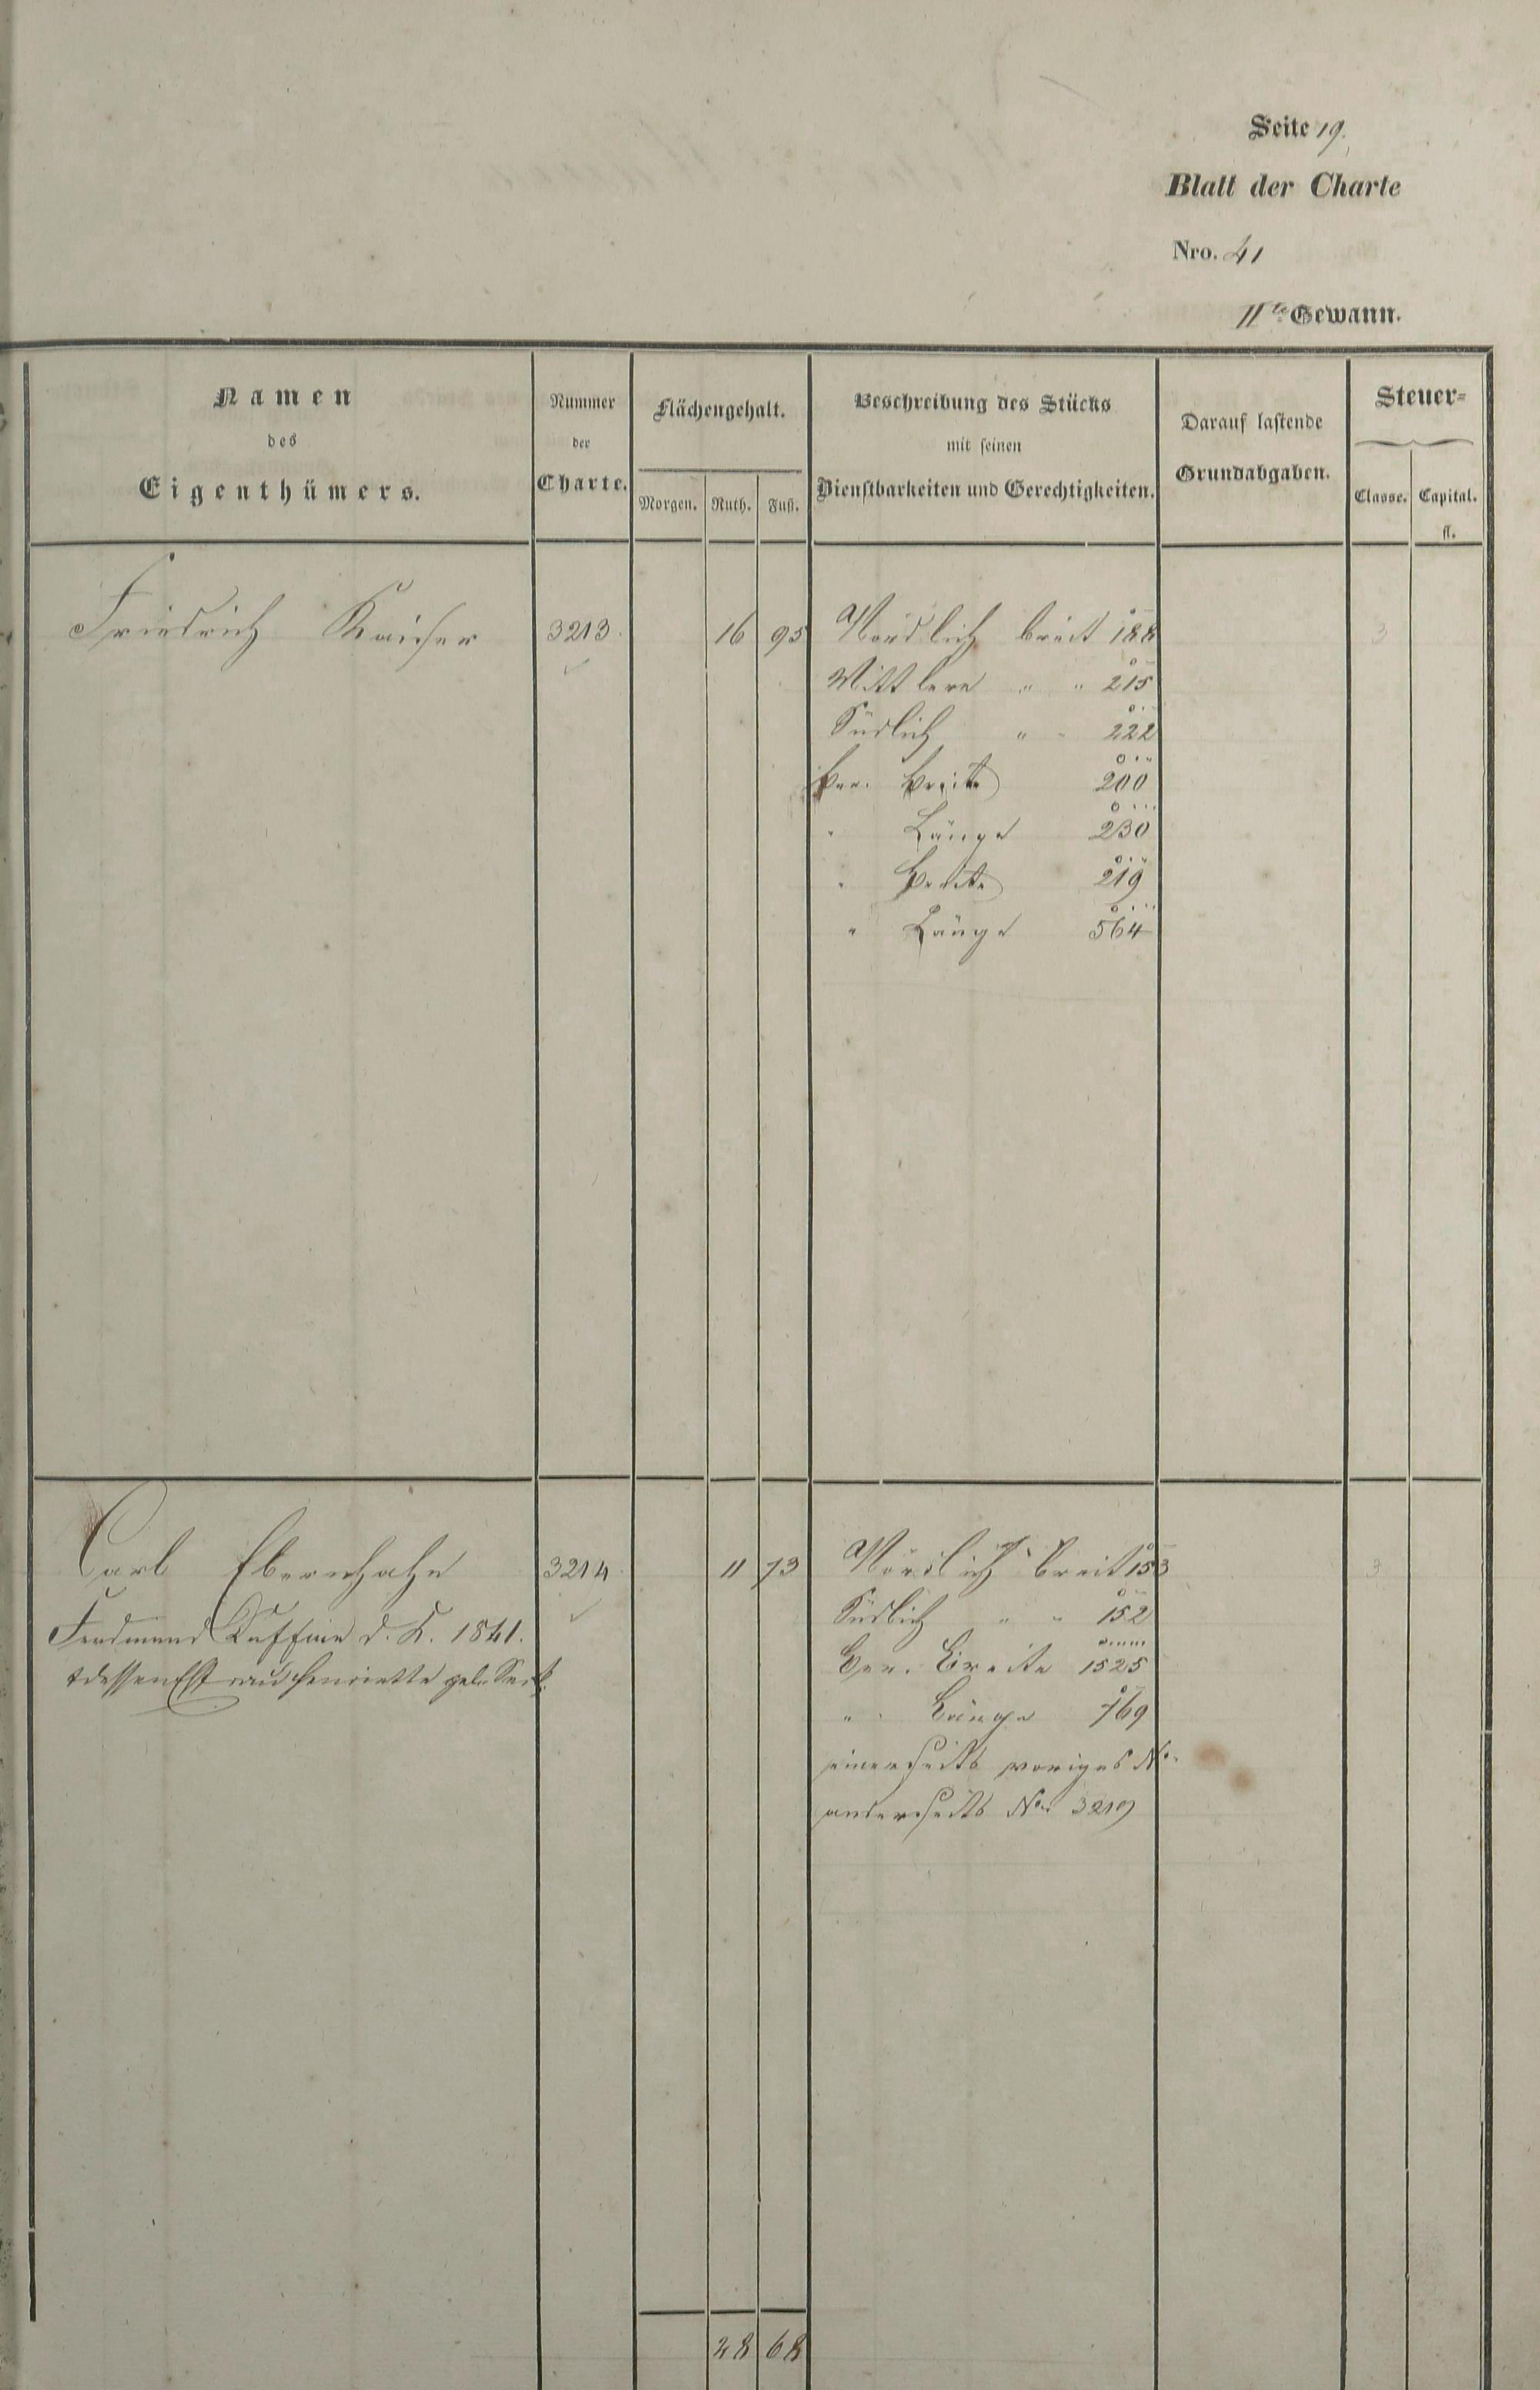 Seite 19.
Blatt der Charte
Nro. 41
IIte Gewann.
Namen
des
Eigenthümers.
Nummer
der
Charte.
Flächengehalt.
Morgen. Ruth. Fuß.
Beschreibung des Stücks
mit seinen
Dienstbarkeiten und Gerechtigkeiten.
Darauf lastende
Grundabgaben.
Steuer-
Classe. Capital.
fl.
Friedrich Kaiser 3213. 16 95 Nördlich breit 188 3
Mittlere " " 215
Südlich " " 222
Ber. Breite 200
" Länge 230
" Breite 219
" Länge 564
Carl Ebernhahn 3214. 11 73 Nördlich breit 153 3
Ferdinand d. K. 1841. Südlich " " 152
dessen Ehefrau Henriette geb. Ber. Breite 1525
" Länge 769
einerseits voriges No
anderseits No 3219
28 68